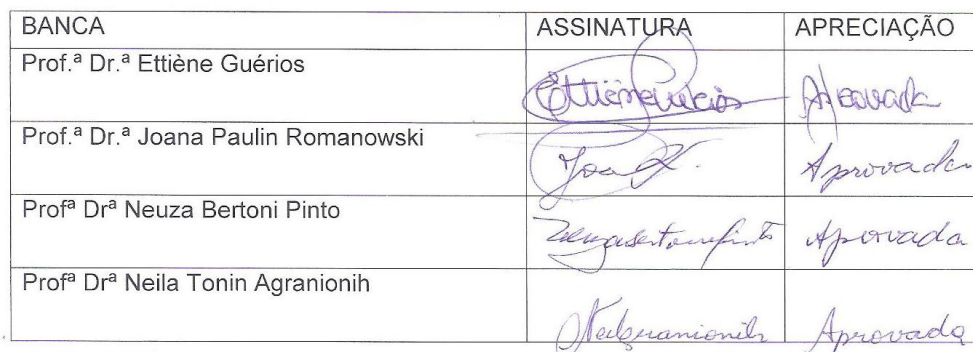 BANCA ASSINATURA APRECIAÇÃO
Prof.ª Dr.ª Ettiène Guérios EttièneGuérios Aprovada
Prof.ª Dr.ª Joana Paulin Romanowski Aprovada
Profª Drª Neuza Bertoni Pinto Neuzabertonipinto Aprovada
Profª Drª Neila Tonin Agranionih Neilagranionih Aprovada